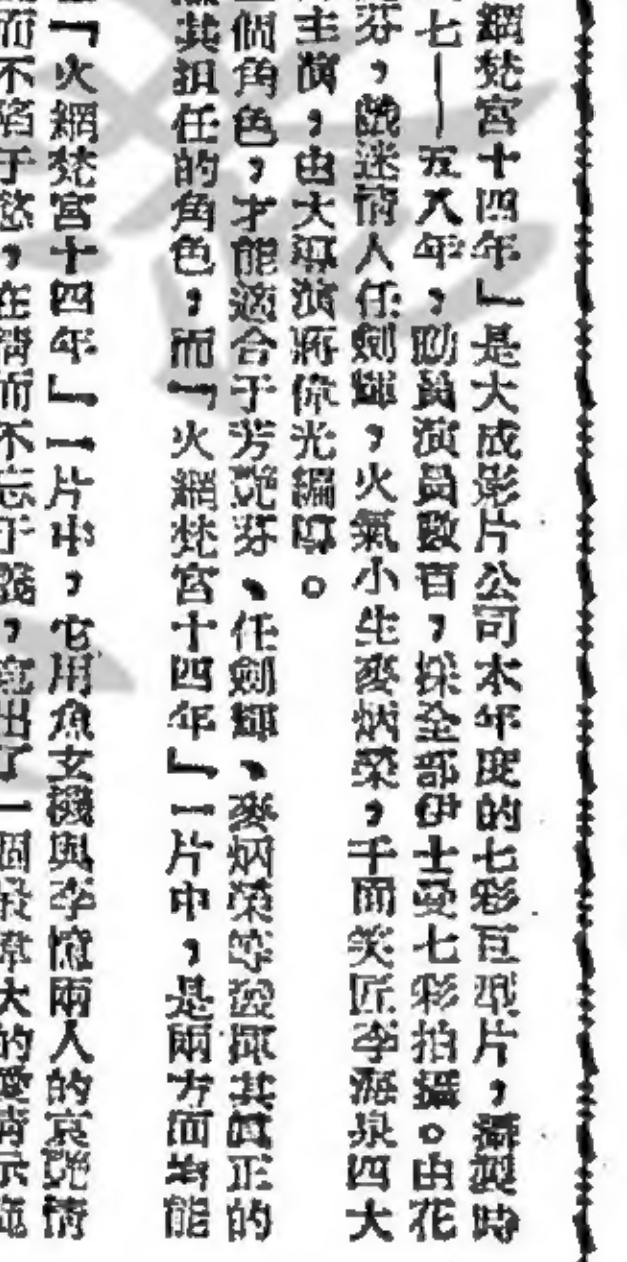 網梵宮十四年」是大成影片公司本年度的七彩巨型片，攝製時
七——五八年，動員演員數百，採全部伊士曼七彩拍攝。由花
芬，戲迷情人任劍輝，火氣小生麥炳榮，千面笑匠李海泉四大
主演，由大導演蔣偉光編導。
個角色，才能適合于芳艷芬、任劍輝、麥炳榮等發揮其真正的
其担任的角色，而「火網梵宮十四年」一片中，是兩方面均能
「火網梵宮十四年」一片中，它用魚玄機與李憶兩人的哀艷情
而不陷于慾，在情而不忘于義，寫出了一個最偉大的愛情示範